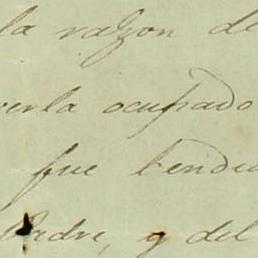 la razon de
verla ocupado
fue bendi
Padre, y del